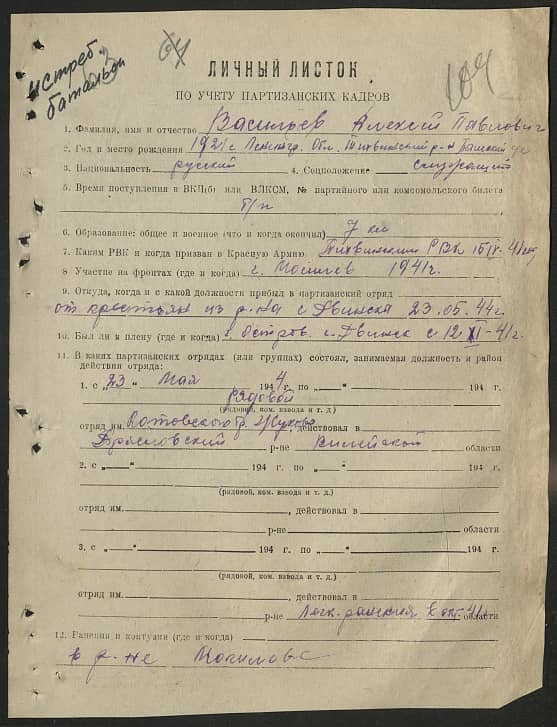 истреб.
батальон
64
104
ЛИЧНЫЙ ЛИСТОК
ПО УЧЕТУ ПАРТИЗАНСКИХ КАДРОВ
1. Фамилия, имя и отчество Васильев Алексей Павлович
2. Год и место рождения 1921 г Ленингр. Обл. Тихвинский р-н
3. Национальность русский 4. Соцположение
5. Время поступления в ВКП(б) или ВЛКСМ, № партийного или комсомольского билета
б/п
6. Образование: общее и военное (что и когда окончил) 7 кл
7. Каким РВК и когда призван в Красную Армию Тихвинским РВК
8 Участие на фронтах (где и когда) г. Могилев 1941г.
9. Откуда, когда и с какой должности прибыл в партизанский отряд
от крестьян из р-на г Двинска 23.05.44г.
10. Был ли в плену (где и когда) г. Остров. г. Двинск с 12 XI-41г
11. В каких партизанских отрядах (или группах) состоял, занимаемая должность и район
действия отряда:
1. с „23“ мая 1944 г. по „ “ 194 г.
рядовой
(рядовой, ком. взвода и т. д.)
отряд им. Котовского бр. Жукова, действовал в
Браславский р-не Вилейской области
2. с „ “ 194 г. по „ “ 194 г.
(рядовой, ком. взвода и т. д.)
отряд им. , действовал в
р-не области
3. с „ “ 194 г. по „ “ 194 г.
(рядовой, ком. взвода и т. д.)
отряд им. , действовал в
р-не области
12. Ранения и контузии (где и когда)
в р-не Могилева